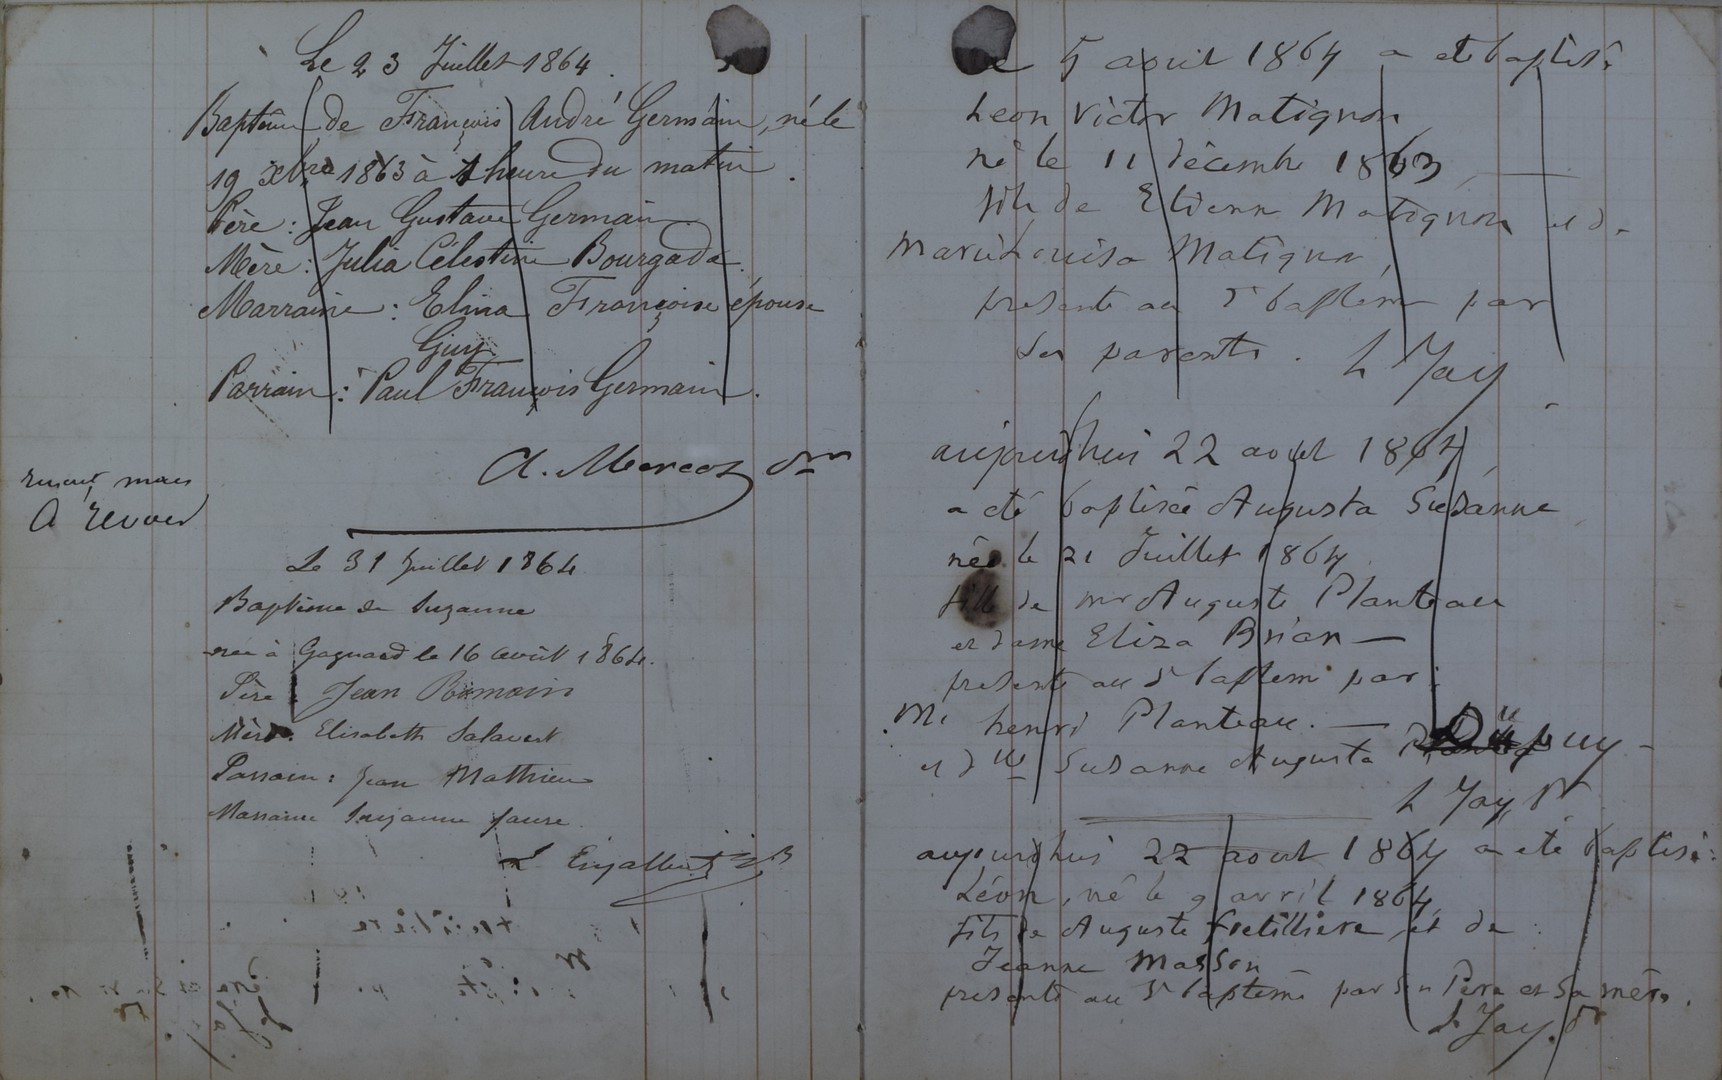 Le 23 Juillet 1864.
Baptême de François André Germain, né le
19 Xbre 1863 à 1 heure du matin.
Père : Jean Gustave Germain
Mère : Julia Célestine Bourgade.
Marraine : Elina Françoise épouse
Guy
Parrain : Paul François Germain.
mais
A
Le 31 Juillet 1864
Baptême de Suzanne
née à Gagnard le 16 Août 1864.
Père Jean Romain
Mère. Elisabeth Salavert
Parrain : Jean Mathieu
Marraine Suzanne faure.
5 1864 a ete baptisé
Leon Victor Matignon
né le 11 décembre 1863
fils de Etienne Matignon et de
Marie Louisa Matignon,
presenté au St baptem par
ses parents. L Jay
aujourdhui 22 aout 1864,
a eté baptisée Augusta Suzanne
née le 21 Juillet 1864
fille de mr Auguste Planteau
et dame Eliza Brian —
presenté au St baptem par :
Mr henri Planteau. —
et dlle Suzanne Augusta Dupuy —
L Jay, Pr
aujourdhui 22 aout 1864 a eté baptisé :
Léon, né le 9 avril 1864,
fils de Auguste fretillière et de
Jeanne Masson
presenté au St baptemé par son Père et sa mère.
L Jay. Pr